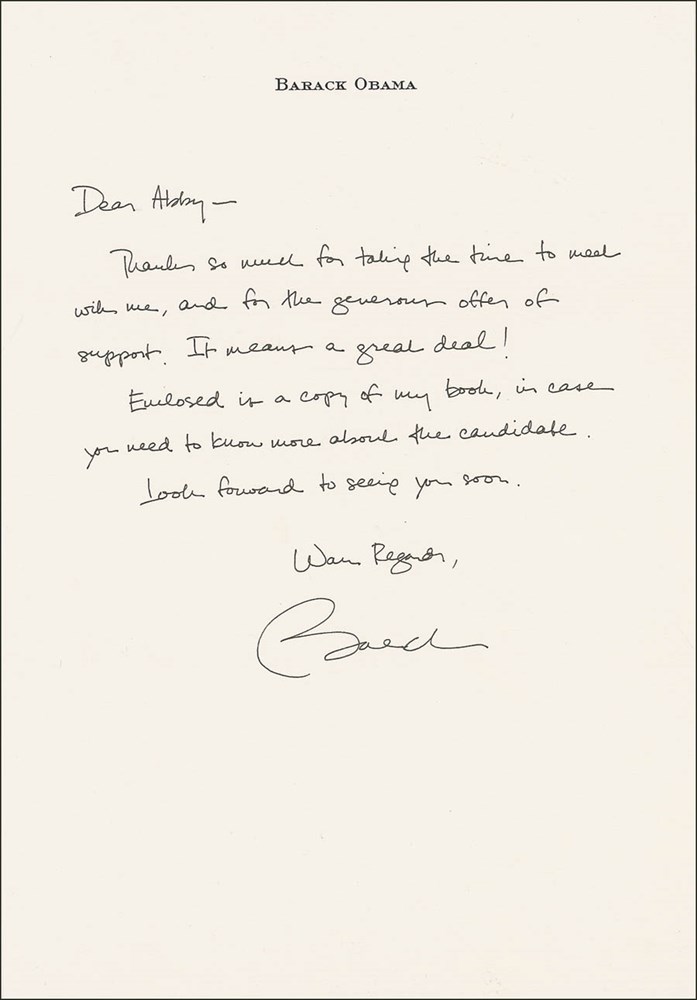 BARACK OBAMA
Dear Abby —
Thanks so much for taking the time to meet
with me, and for the generous offer of
support. It means a great deal!
Enclosed is a copy of my book, in case
you need to know more about the candidate.
Look forward to seeing you soon.
Warm Regards,
Barack